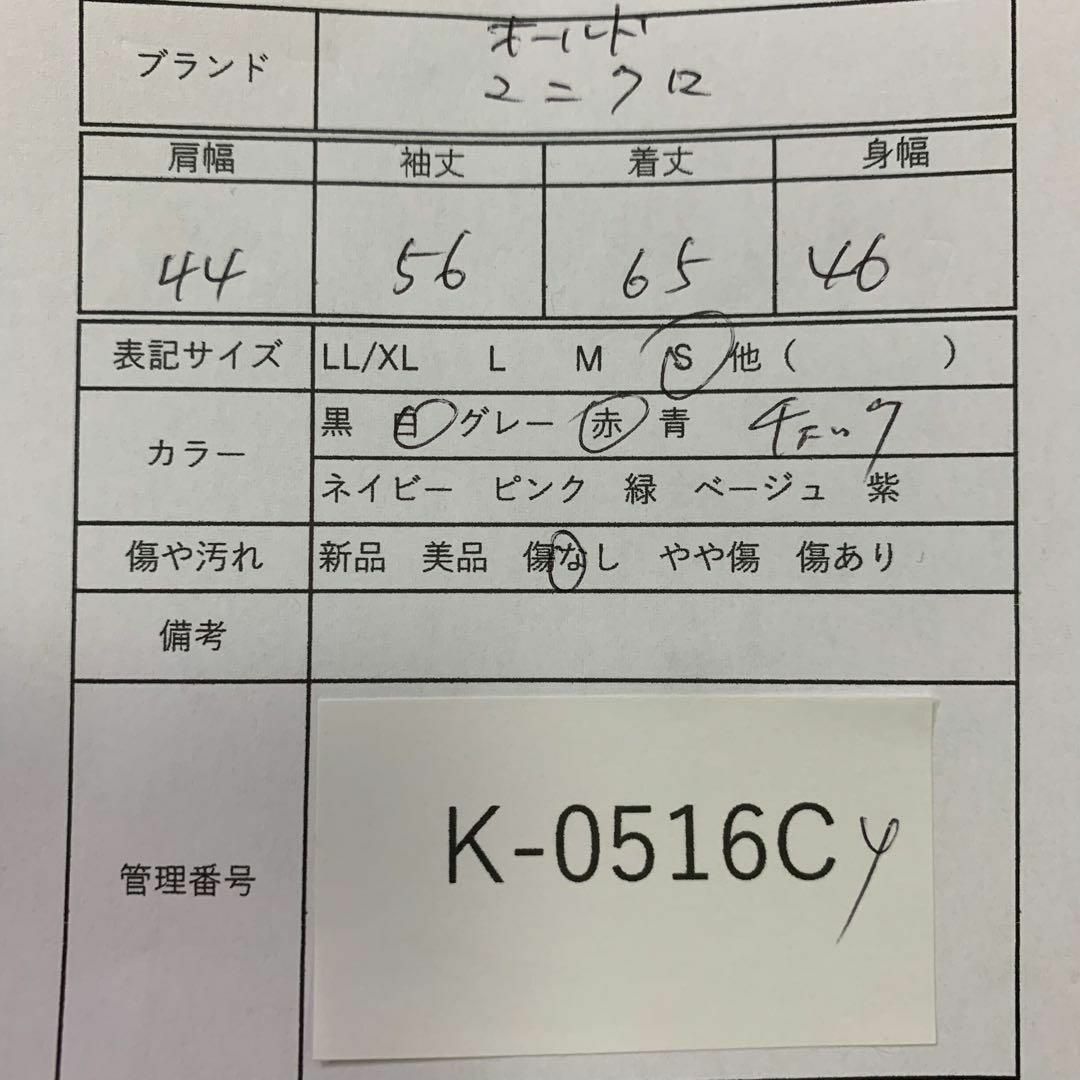 ブランド オールド
ユニクロ
肩幅 袖丈 着丈 身幅
44 56 65 46
表記サイズ LL/XL L M S 他( )
カラー 黒 白 グレー 赤 青 チェック
ネイビー ピンク 緑 ベージュ 紫
傷や汚れ 新品 美品 傷なし やや傷 傷あり
備考
管理番号 K-0516Cy